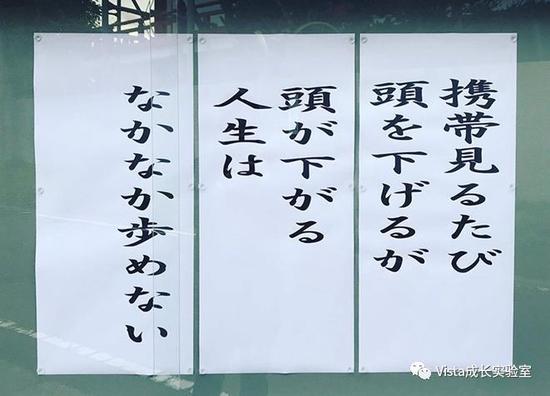 携帯見るたび
頭を下げるが
頭が下がる
人生は
なかなか歩めない
Vista成长实验室